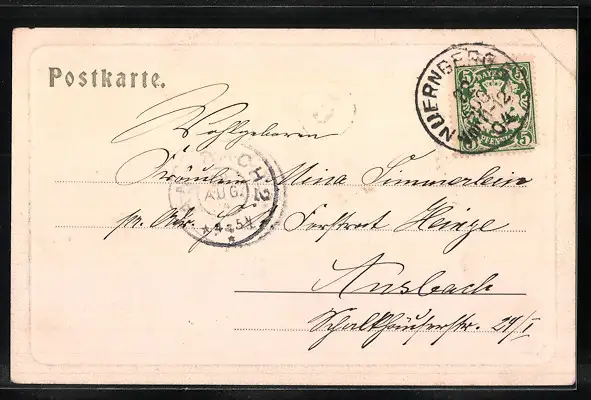 Postkarte.
NUERNBERG
BAYERN
5 5
PFENNIG
Wohlgeboren
Fräulein Mina Simmerlein
AUG.
pr. Adr. Forstrat Heinze
Ansbach
Schalkhäuserstr. 29/I